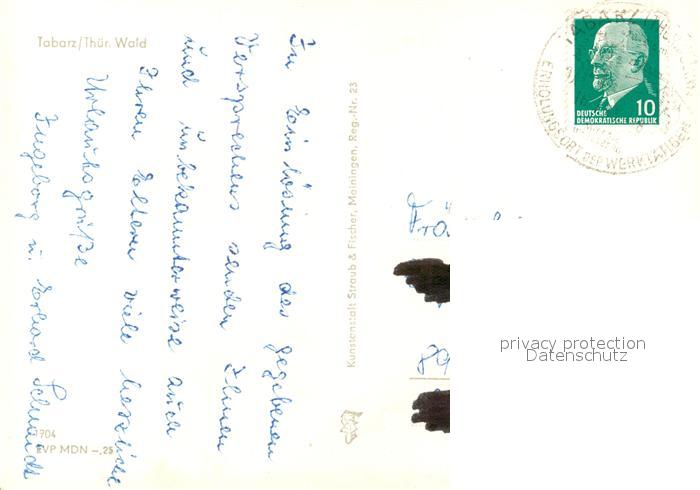 Tabarz/Thür. Wald
In Einlösung des gegebenen
Versprechens senden Ihnen
und unbekannterweise auch
Ihren Eltern viele herzliche
Urlaubsgrüße
Ingeborg u. Erhard Schmidt
1904
EVP MDN –,25
Kunstanstalt Straub & Fischer, Meiningen, Reg.-Nr. 23
TABARZ
ERHOLUNGSORT DER WERKTÄTIGEN
DEUTSCHE
DEMOKRATISCHE REPUBLIK
10
privacy protection
Datenschutz